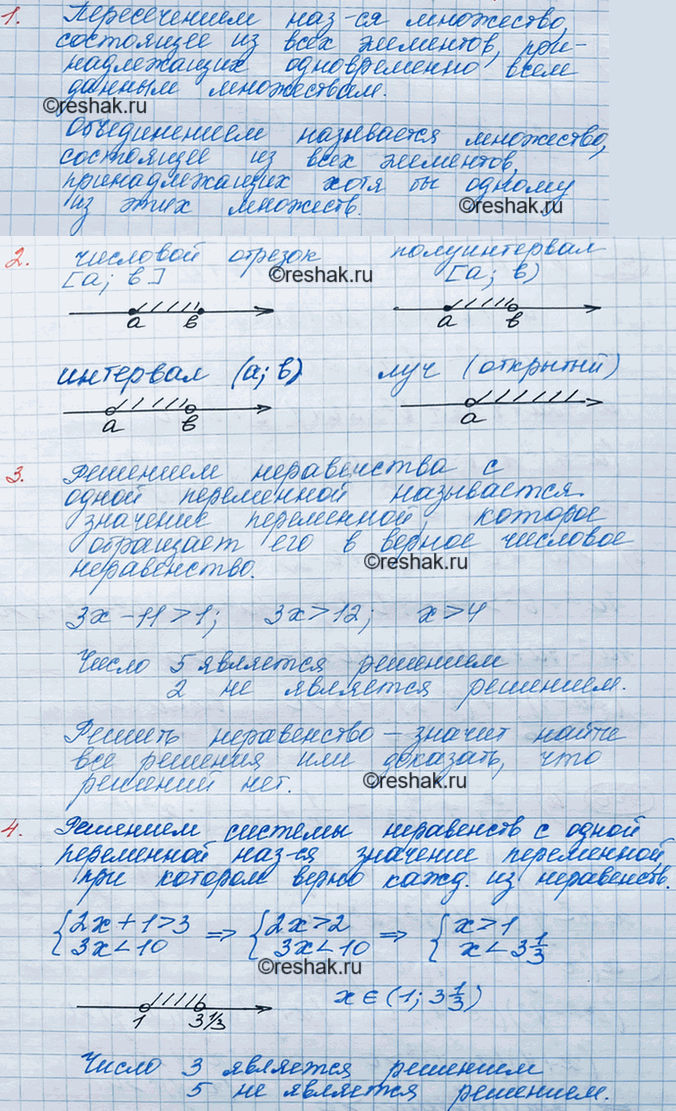 1. Пересечением наз-ся множество,
состоящее из всех элементов, при-
надлежащих одновременно всем
данным множествам.
©reshak.ru
Объединением называется множество,
состоящее из всех элементов,
принадлежащих хотя бы одному
из этих множеств.
©reshak.ru
2. числовой отрезок полуинтервал
[a; в] ©reshak.ru [a; в)
a в a в
интервал (a; в) луч (открытый)
a в a
3. Решением неравенства с
одной переменной называется
значение переменной, которое
обращает его в верное числовое
неравенство. ©reshak.ru
3x - 11 > 1; 3x > 12; x > 4
Число 5 является решением
2 не является решением.
Решить неравенство – значит найти
все решения или доказать, что
решений нет. ©reshak.ru
4. Решением системы неравенств с одной
переменной наз-ся значение переменной
при котором верно кажд. из неравенств.
{2x + 1 > 3 ⇒ {2x > 2 ⇒ {x > 1
3x < 10 3x < 10 x < 3 1/3
©reshak.ru
x ∈ (1; 3 1/3)
1 3 1/3
Число 3 является решением
5 не является решением.